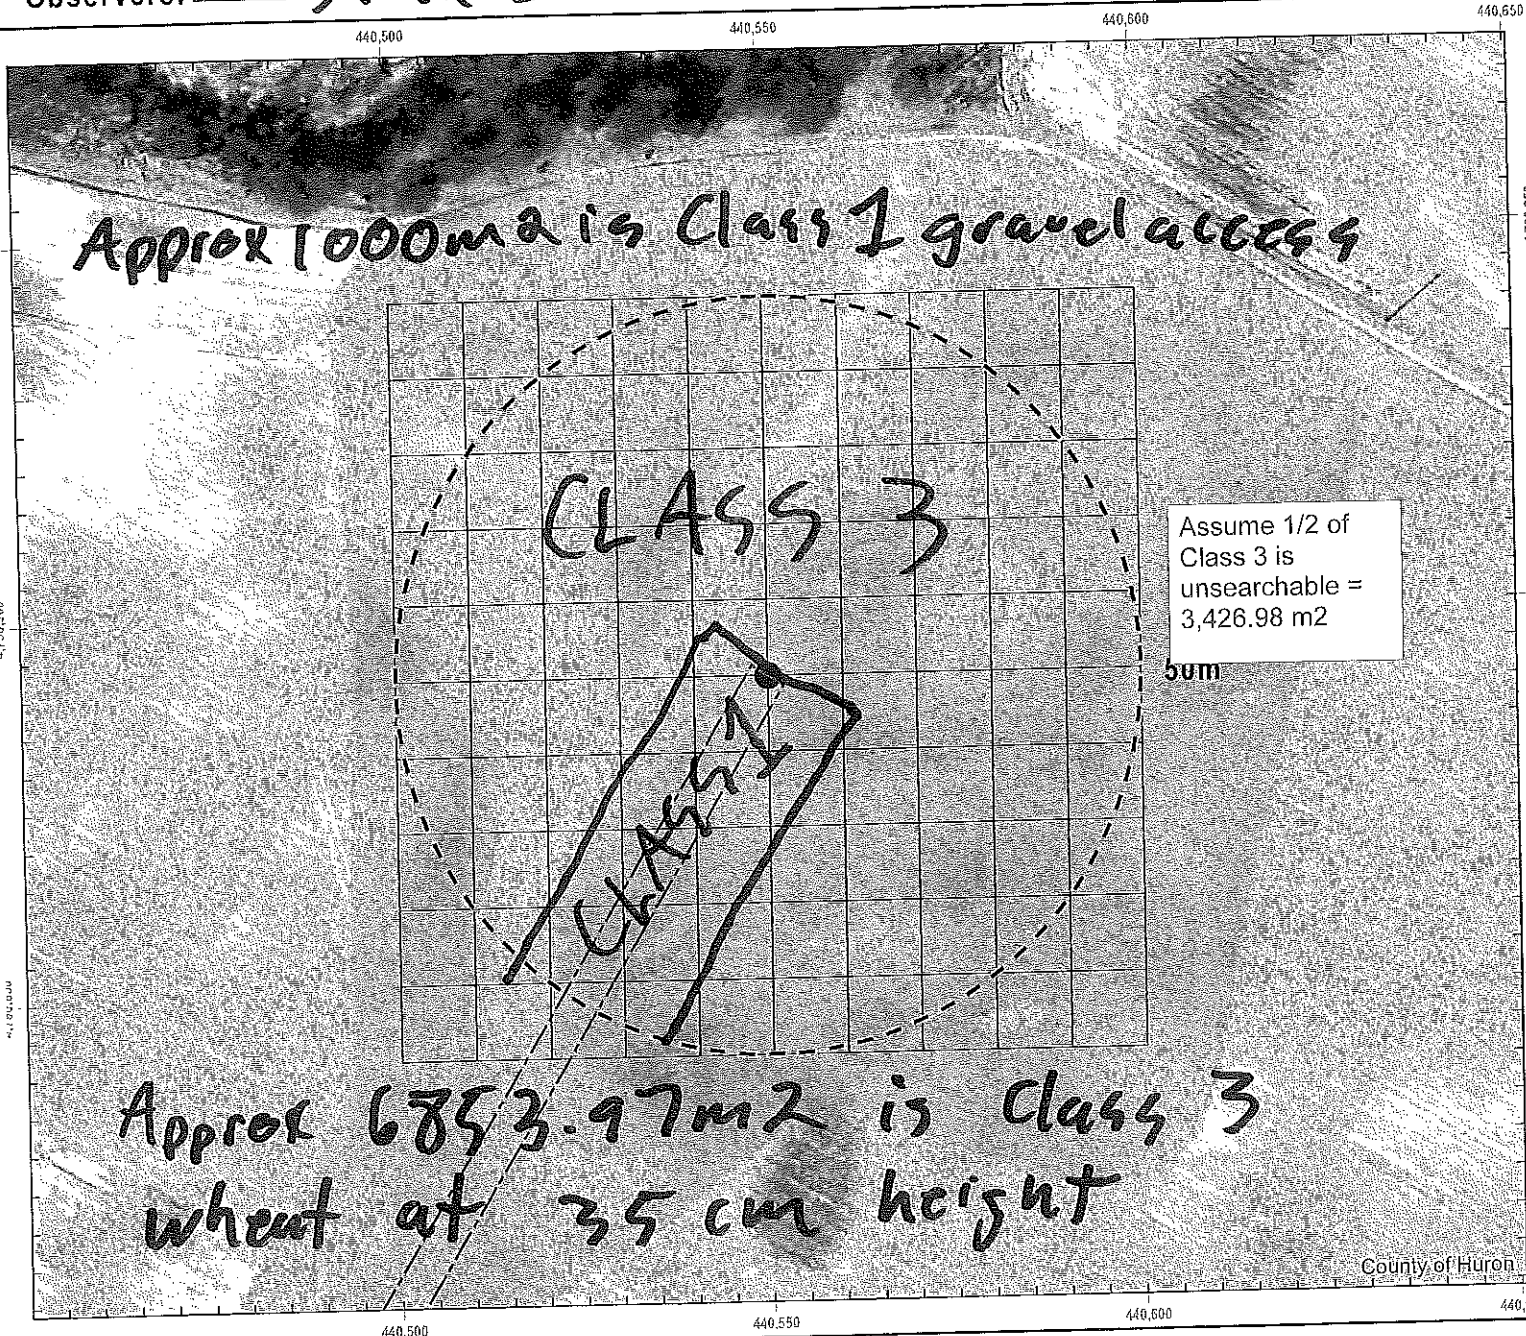 440,500
440,550
440,600
440,650
Approx 1000m2 is Class 1 gravel access
CLASS 3
Assume 1/2 of
Class 3 is
unsearchable =
3,426.98 m2
50m
CLASS 1
Approx 6853.97m2 is Class 3
wheat at 35 cm height
County of Huron
440,500
440,550
440,600